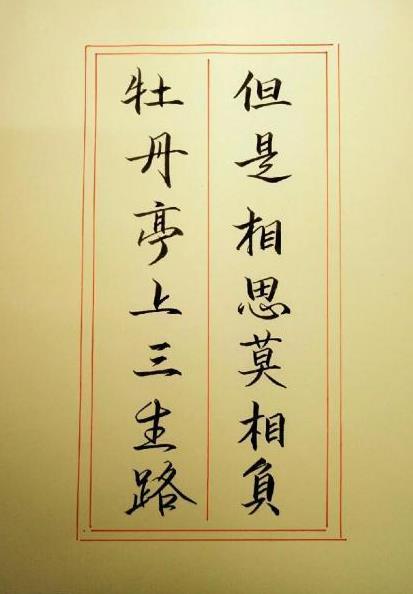 但是相思莫相負
牡丹亭上三生路